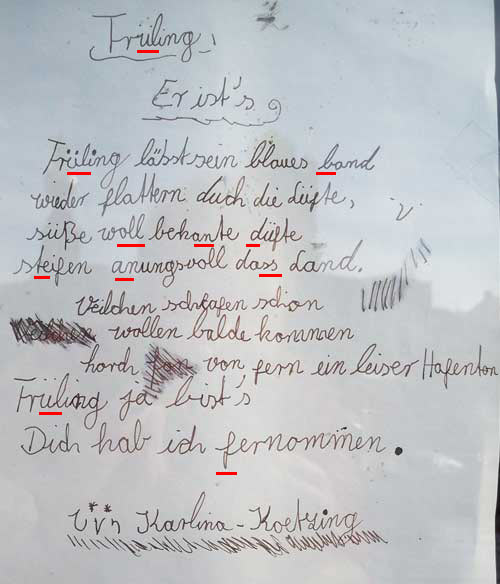 Früling
Er ist's
Früling lässt sein blaues band
wieder flattern duch die Lüfte,
süße woll bekante düfte
steifen anungsvoll dass Land.
Veilchen schlafen schon
wollen balde kommen
horch von fern ein leiser Hafenton
Früling ja bist's
Dich hab ich fernommen.
Karlina-Koetzing